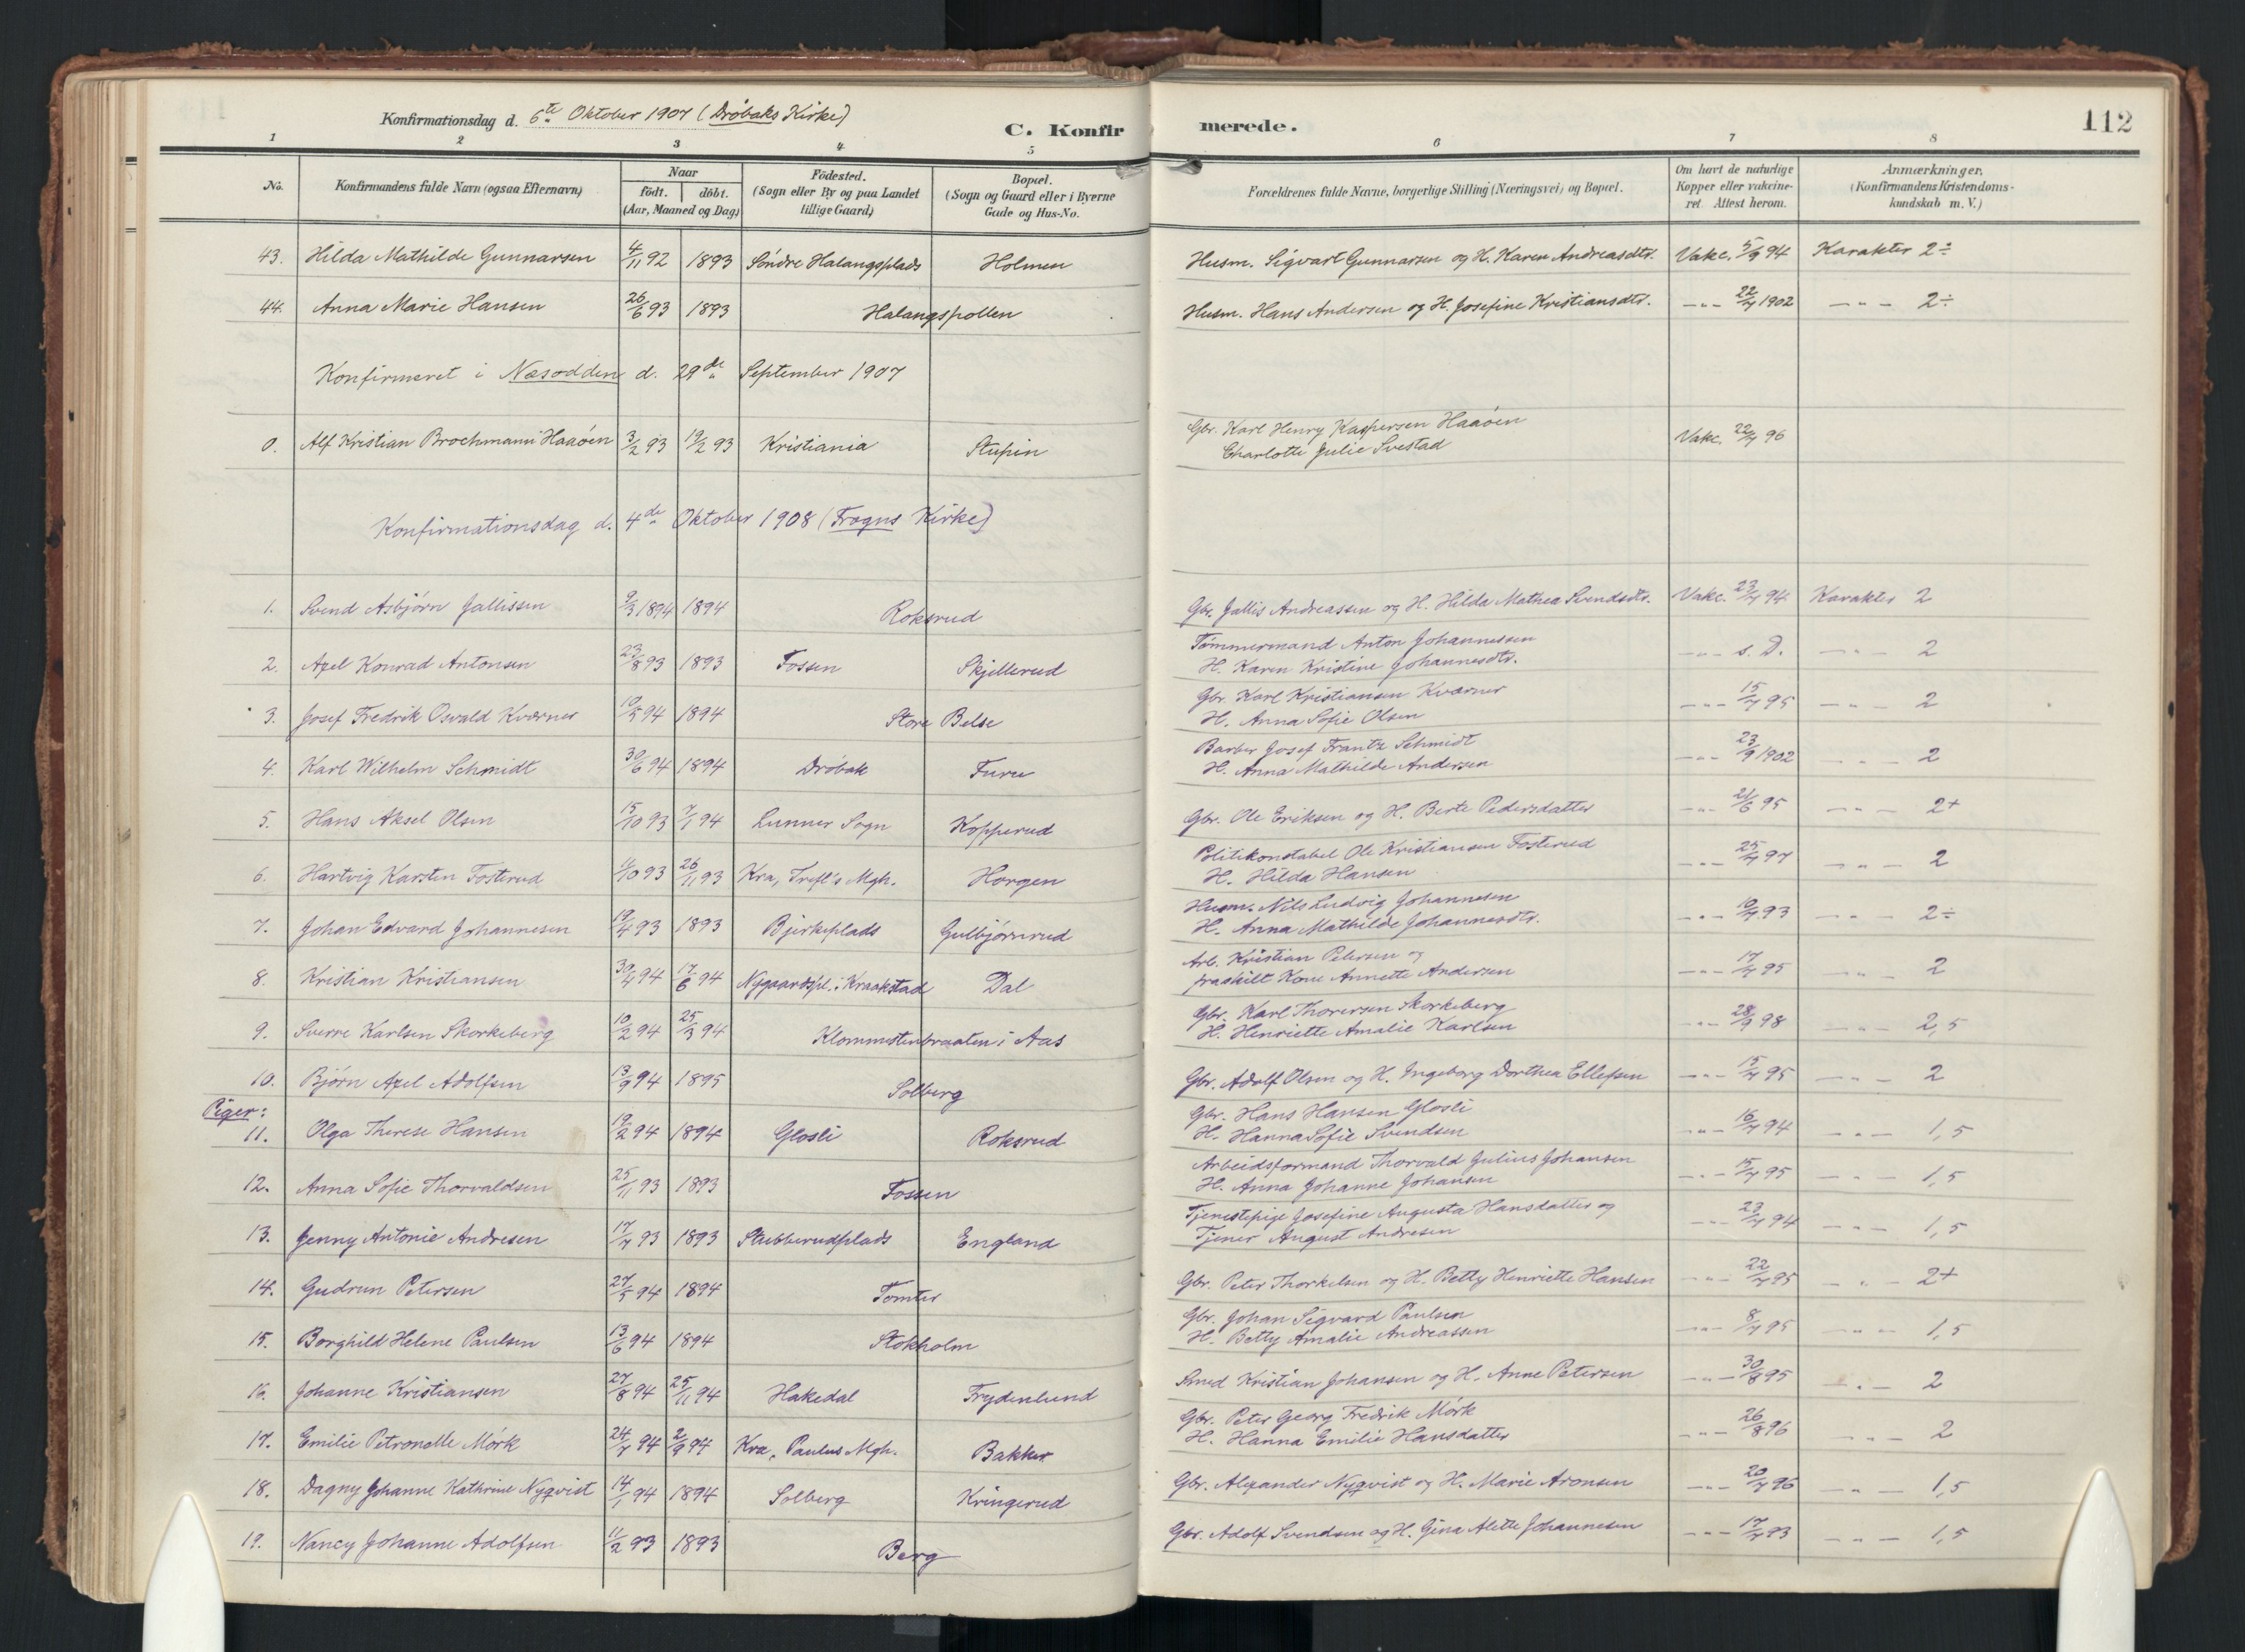 112
Konfirmationsdag d. 6te Oktober 1907 (Drøbaks Kirke)
C. Konfirmerede.
1 2 3 4 5 6 7 8
No. Konfirmandens fulde Navn (ogsaa Efternavn) Naar født. døbt. (Aar, Maaned og Dag) Fødested. (Sogn eller By og paa Landet tillige Gaard) Bopæl. (Sogn og Gaard eller i Byerne Gade og Hus-No. Forældrenes fulde Navne, borgerlige Stilling (Næringsvei) og Bopæl. Om havt de naturlige Kopper eller vakcineret. Attest herom. Anmærkninger, (Konfirmandens Kristendomskundskab m. V.)
43. Hilda Mathilde Gunnarsen 4/11 92 1893 Søndre Halangsplads Holmen Husm. Sigvart Gunnarsen og H. Karen Andreasdtr. Vakc. 5/9 94 Karakter 2÷
44. Anna Marie Hansen 26/6 93 1893 Halangspollen Husm. Hans Andersen og H. Josefine Kristiansdtr. —„— 22/7 1902 —„— 2÷
Konfirmeret i Næsodden d. 29de September 1907
0. Alf Kristian Brochmann Haaøen 3/2 93 19/2 93 Kristiania Stupin Gbr. Karl Henry Kaspersen Haaøen
Charlotte Julie Svestad Vakc. 22/7 96
Konfirmationsdag d. 4de Oktober 1908 (Frogns Kirke)
1. Svend Asbjørn Jallissen 9/3 1894 1894 Roksrud Gbr. Jallis Andreassen og H. Hilda Mathea Svendsdtr. Vakc. 23/7 94 Karakter 2
2. Axel Konrad Antonsen 23/8 93 1893 Fossen Skjellerud Tømmermand Anton Johannessen
H. Karen Kristine Johannesdtr. —„— s. D. —„— 2
3. Josef Fredrik Osvald Kværner 10/5 94 1894 Store Belse Gbr. Karl Kristiansen Kværner
H. Anna Sofie Olsen —„— 15/7 95 —„— 2
4. Karl Wilhelm Schmidt 30/6 94 1894 Drøbak Furu Barber Josef Frantz Schmidt
H. Anna Mathilde Andersen —„— 23/9 1902 —„— 2
5. Hans Aksel Olsen 15/10 93 7/1 94 Lunner Sogn Kopperud Gbr. Ole Eriksen og H. Berte Pedersdatter —„— 21/6 95 —„— 2+
6. Hartvig Karsten Fosterud /10 93 26/11 93 Kra, Trefl's Mgh. Horgen Politikonstabel Ole Kristiansen Fosterud
H. Hilda Hansen —„— 25/7 97 —„— 2
7. Johan Edvard Johannesen 19/4 93 1893 Bjerkeplads Gulbjørnrud Husm. Nils Ludvig Johannesen
H. Anna Mathilde Johannesdtr. —„— 10/7 93 —„— 2÷
8. Kristian Kristiansen 30/4 94 17/6 94 Nygaardspl. i Kraakstad Dal Arb. Kristian Petersen og
fraskilt Kone Annette Andersen —„— 17/7 95 —„— 2
9. Sverre Karlsen Skorkeberg 10/2 94 25/3 94 Klommestenbraaten i Aas Gbr. Karl Thoresen Skorkeberg
H. Henriette Amalie Karlsen —„— 28/9 98 —„— 2,5
10. Bjørn Axel Adolfsen 13/9 94 1895 Solberg Gbr. Adolf Olsen og H. Ingeborg Dorthea Ellefsen —„— 15/7 95 —„— 2
Piger:
11. Olga Therese Hansen 19/2 94 1894 Glosli Roksrud Gbr. Hans Hansen Glosli
H. Hanna Sofie Svendsen —„— 16/7 94 —„— 1,5
12. Anna Sofie Thorvaldsen 25/11 93 1893 Fossen Arbeidsformand Thorvald Julius Johansen
H. Anna Johanne Johansen —„— 15/7 95 —„— 1,5
13. Jenny Antonie Andresen 17/7 93 1893 Stubberudplads England Tjenestepige Josefine Augusta Hansdatter og
Tjener August Andresen —„— 23/7 94 —„— 1,5
14. Gudrun Petersen 27/5 94 1894 Tomter Gbr. Peter Thorkelsen og H. Betty Henriette Hansen —„— 22/7 95 —„— 2+
15. Borghild Helene Paulsen 13/6 94 1894 Stokholm Gbr. Johan Sigvard Paulsen
H. Betty Amalie Andreassen —„— 8/7 95 —„— 1,5
16. Johanne Kristiansen 27/8 94 25/11 94 Hakedal Frydenlund Smed Kristian Johansen og H. Anne Petersen —„— 30/8 95 —„— 2
17. Emilie Petronelle Mørk 24/7 94 2/9 94 Kra, Paulus Mgh. Bakker Gbr. Peter Georg Fredrik Mørk
H. Hanna Emilie Hansdatter —„— 26/8 96 —„— 2
18. Dagny Johanne Kathrine Nyqvist 14/1 94 1894 Solberg Kringerud Gbr. Alexander Nyqvist og H. Marie Aronsen —„— 20/7 96 —„— 1,5
19. Nancy Johanne Adolfsen 11/2 93 1893 Berg Gbr. Adolf Svendsen og H. Gina Alette Johannesen —„— 17/7 93 —„— 1,5